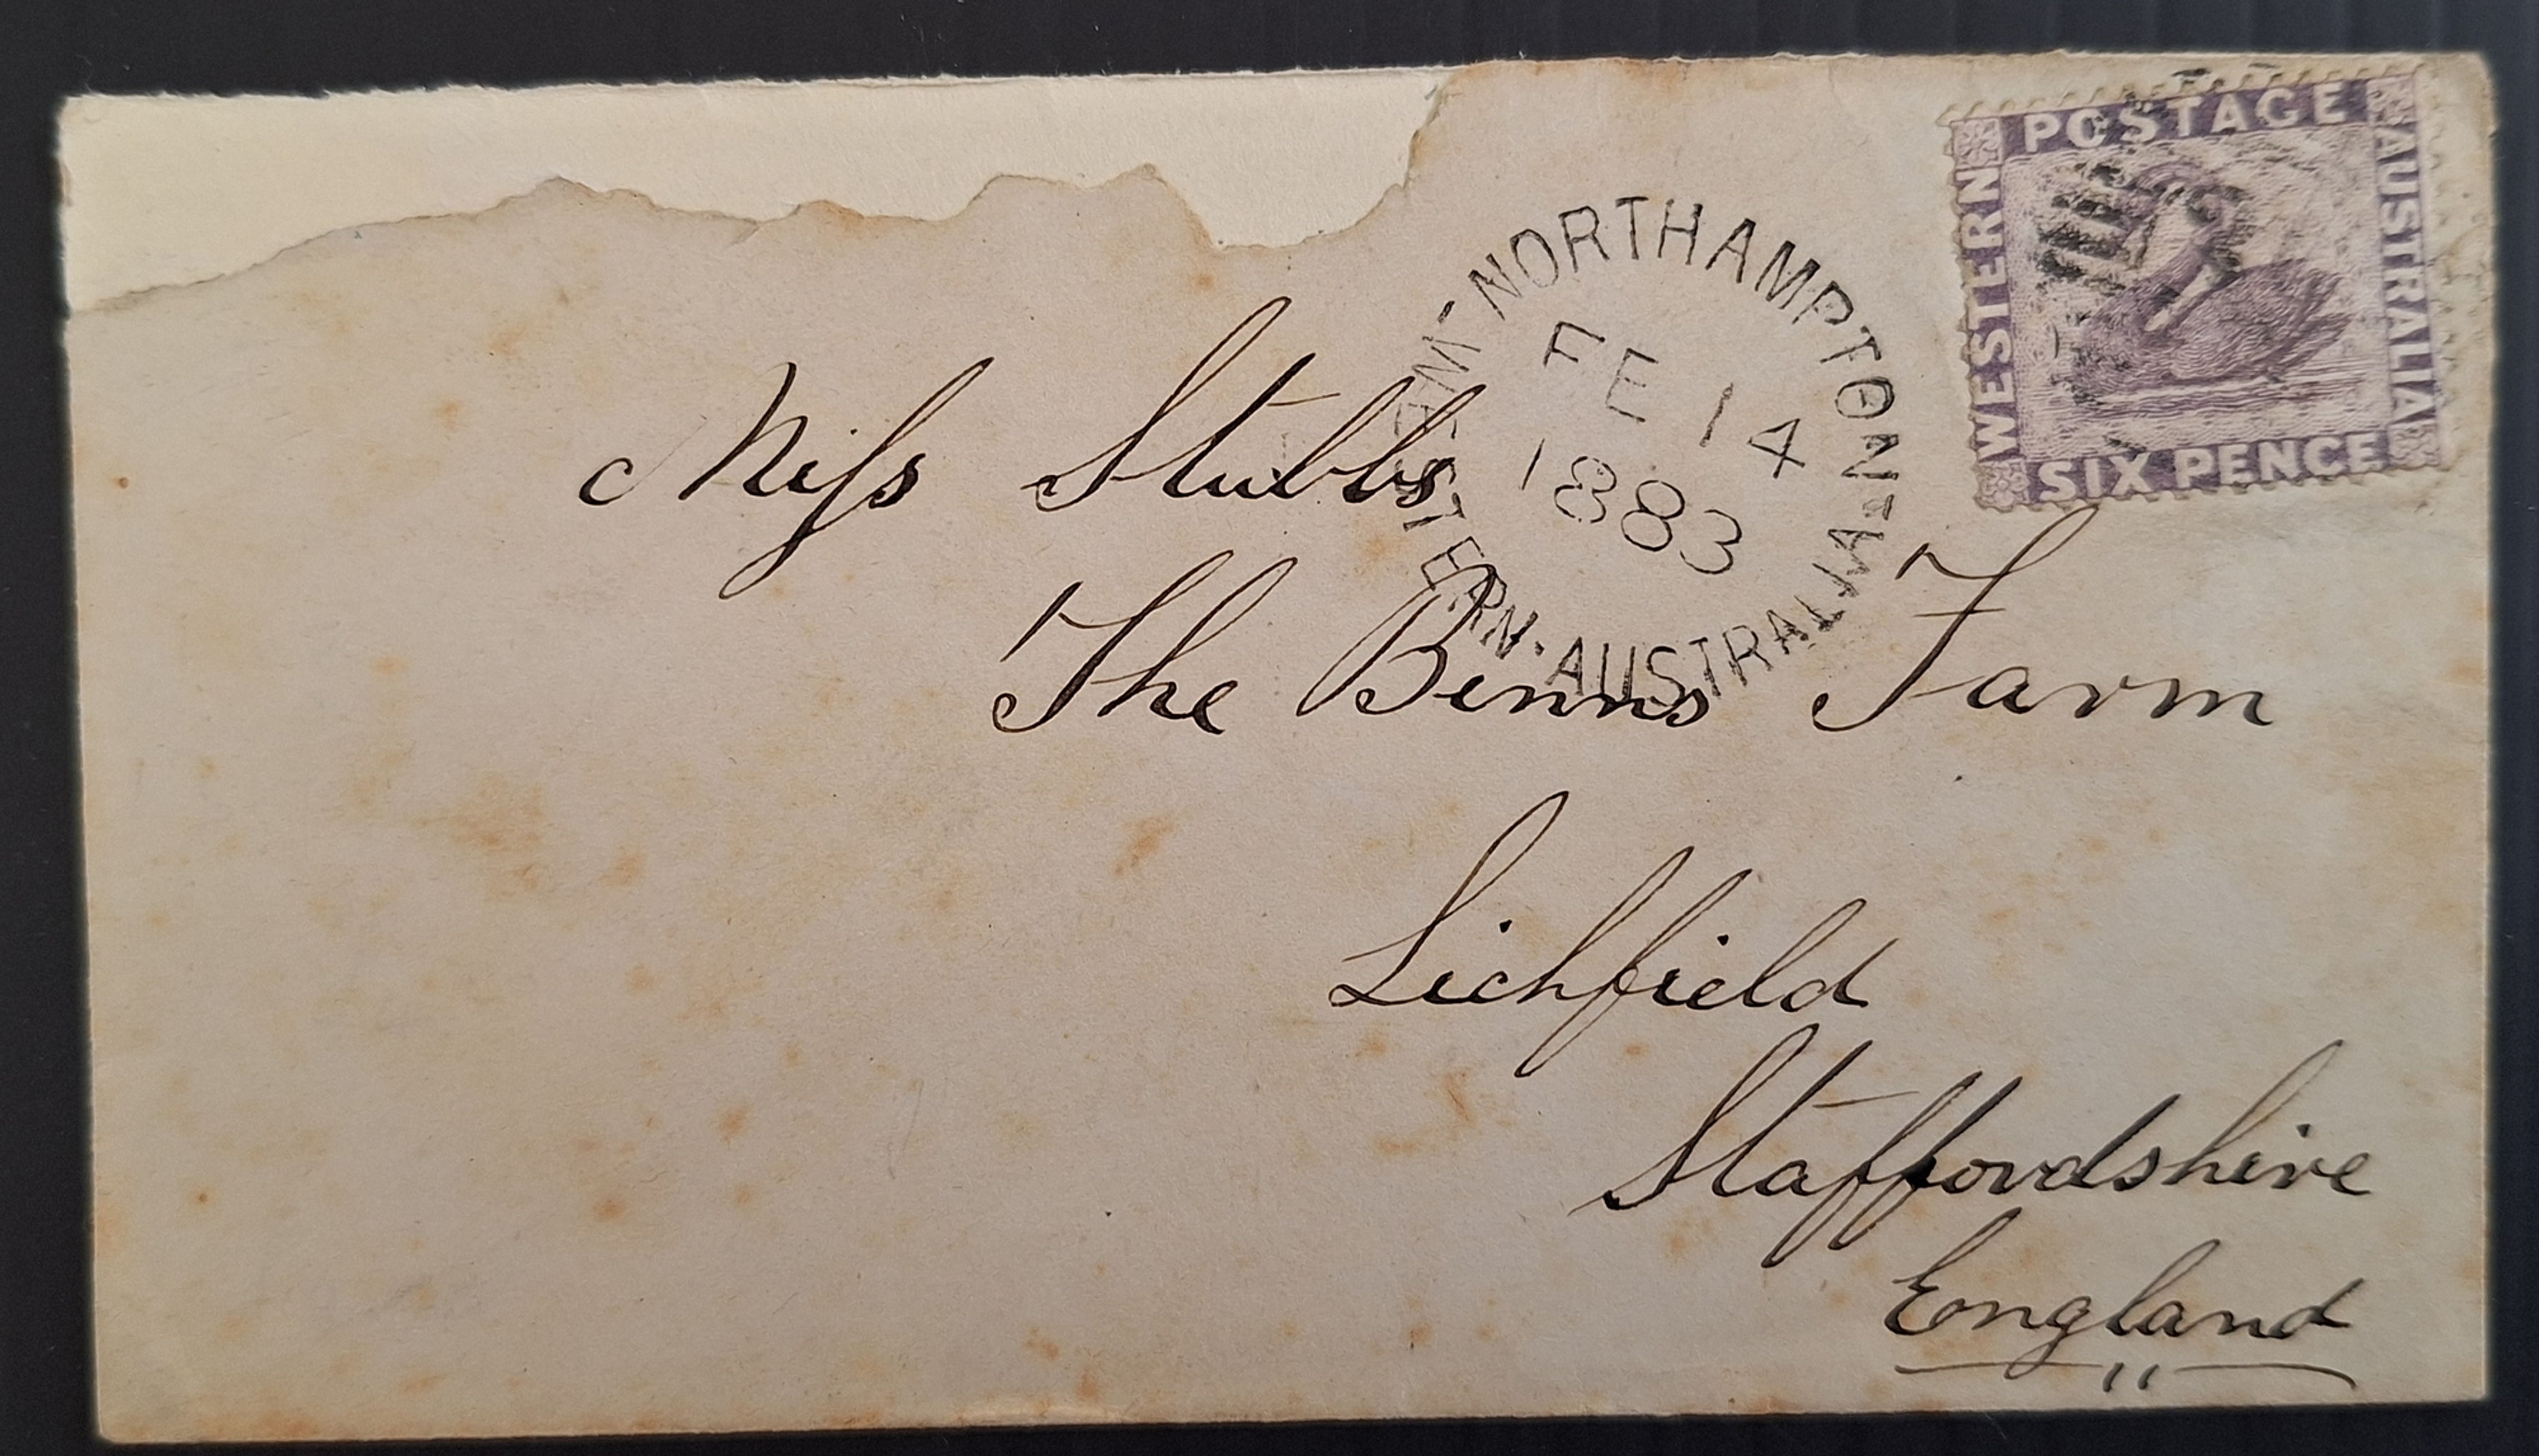 POSTAGE
WESTERN
AUSTRALIA
SIX PENCE
NORTHAMPTON
FE 14
1883
WESTERN · AUSTRALIA
Miſs Stubbs
The Benns Farm
Lichfield
Staffordshire
England